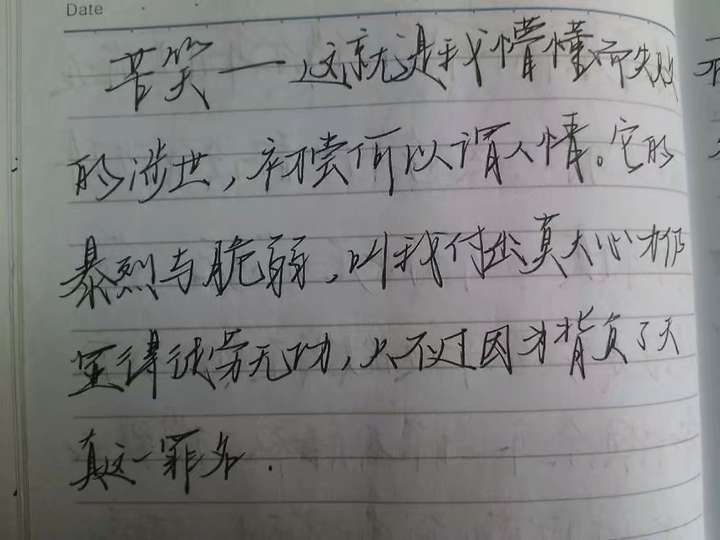 Date
苦笑——这就是我懵懂而失败
的涉世,初尝何以谓人情。它的
暴烈与脆弱,叫我付出莫大心力仍
呈徒劳无功,只不过因为背负了天
真这一罪名.